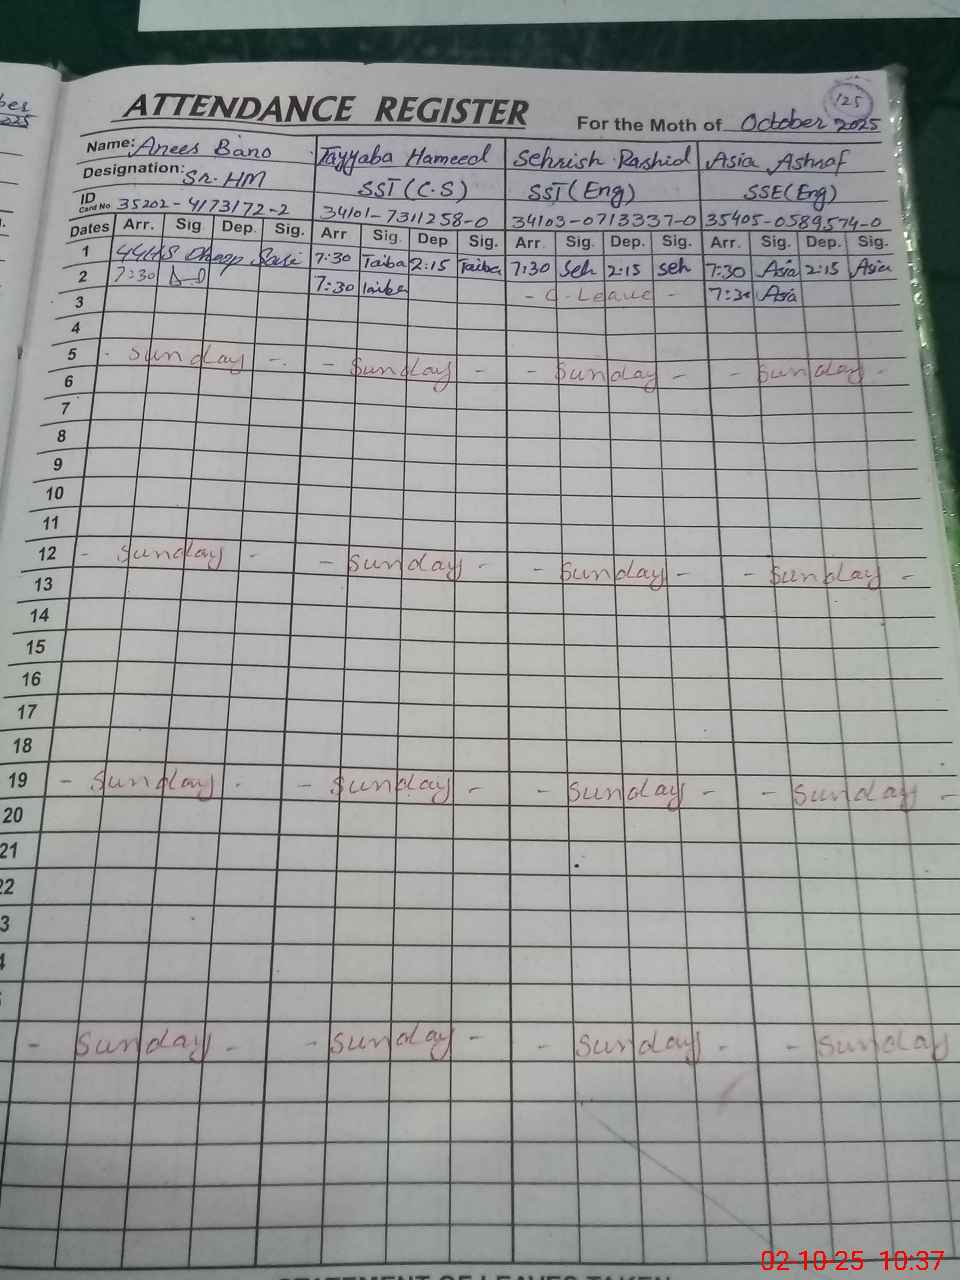 ber
225
125
ATTENDANCE REGISTER
For the Moth of October 2025
Name: Anees Bano Tayyaba Hameed Sehrish Rashid Asia Ashraf
Designation: Sr. HM SST (C.S) SST (Eng) SSE (Eng)
ID Card No 35202-4173172-2 34101-7311258-0 34103-0713337-0 35405-0589574-0
Dates Arr. Sig. Dep. Sig. Arr. Sig. Dep. Sig. Arr. Sig. Dep. Sig. Arr. Sig. Dep. Sig.
1 GGHS 7:30 Taiba 2:15 Taiba 7:30 Seh 2:15 Seh 7:30 Asia 2:15 Asia
2 7:30 7:30 Taiba - C-Leave - 7:30 Asia
3
4
5 - Sunday - - Sunday - - Sunday - - Sunday -
6
7
8
9
10
11
12 - Sunday - - Sunday - - Sunday - - Sunday -
13
14
15
16
17
18
19 - Sunday - - Sunday - - Sunday - - Sunday -
20
21
22
3
4
- Sunday - - Sunday - - Sunday - - Sunday
STATEMENT OF LEAVES TAKEN
02-10-25 10:37